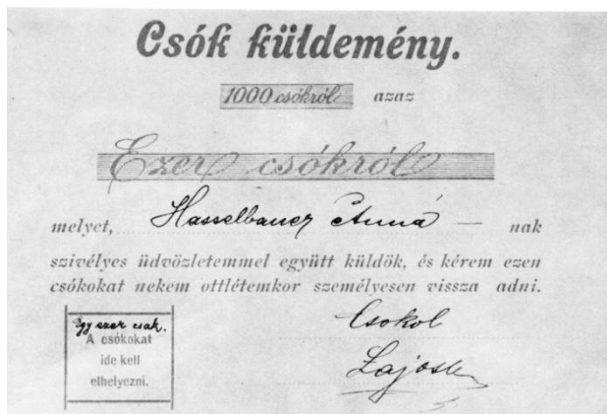 Csók küldemény.
1000 csókról azaz
Ezer csókról
melyet, Hasselbauer Anná — nak
szivélyes üdvözletemmel együtt küldök, és kérem ezen
csókokat nekem ottlétemkor személyesen vissza adni.
Egy ezer csak.
A csókokat
ide kell
elhelyezni.
Csokol
Lajos